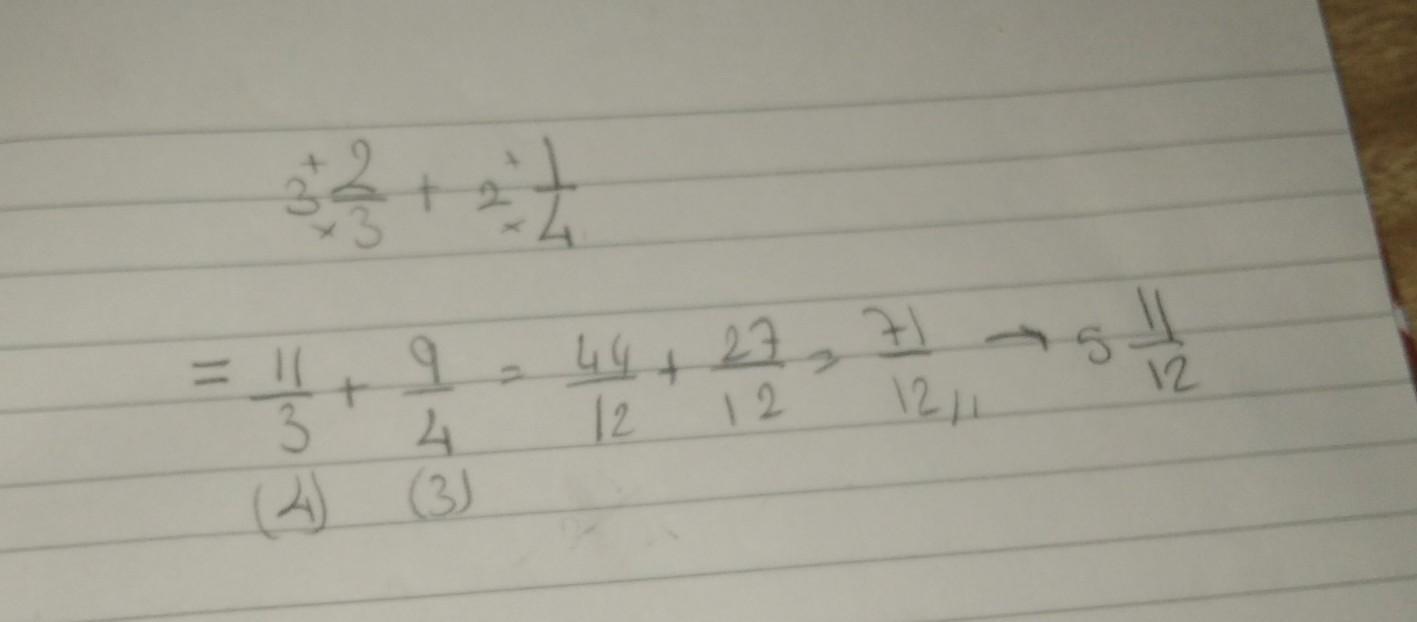 3 + 2/3 × + 2 + 1/4 ×
= 11/3 + 9/4 = 44/12 + 27/12 = 71/12,, → 5 11/12
(4) (3)